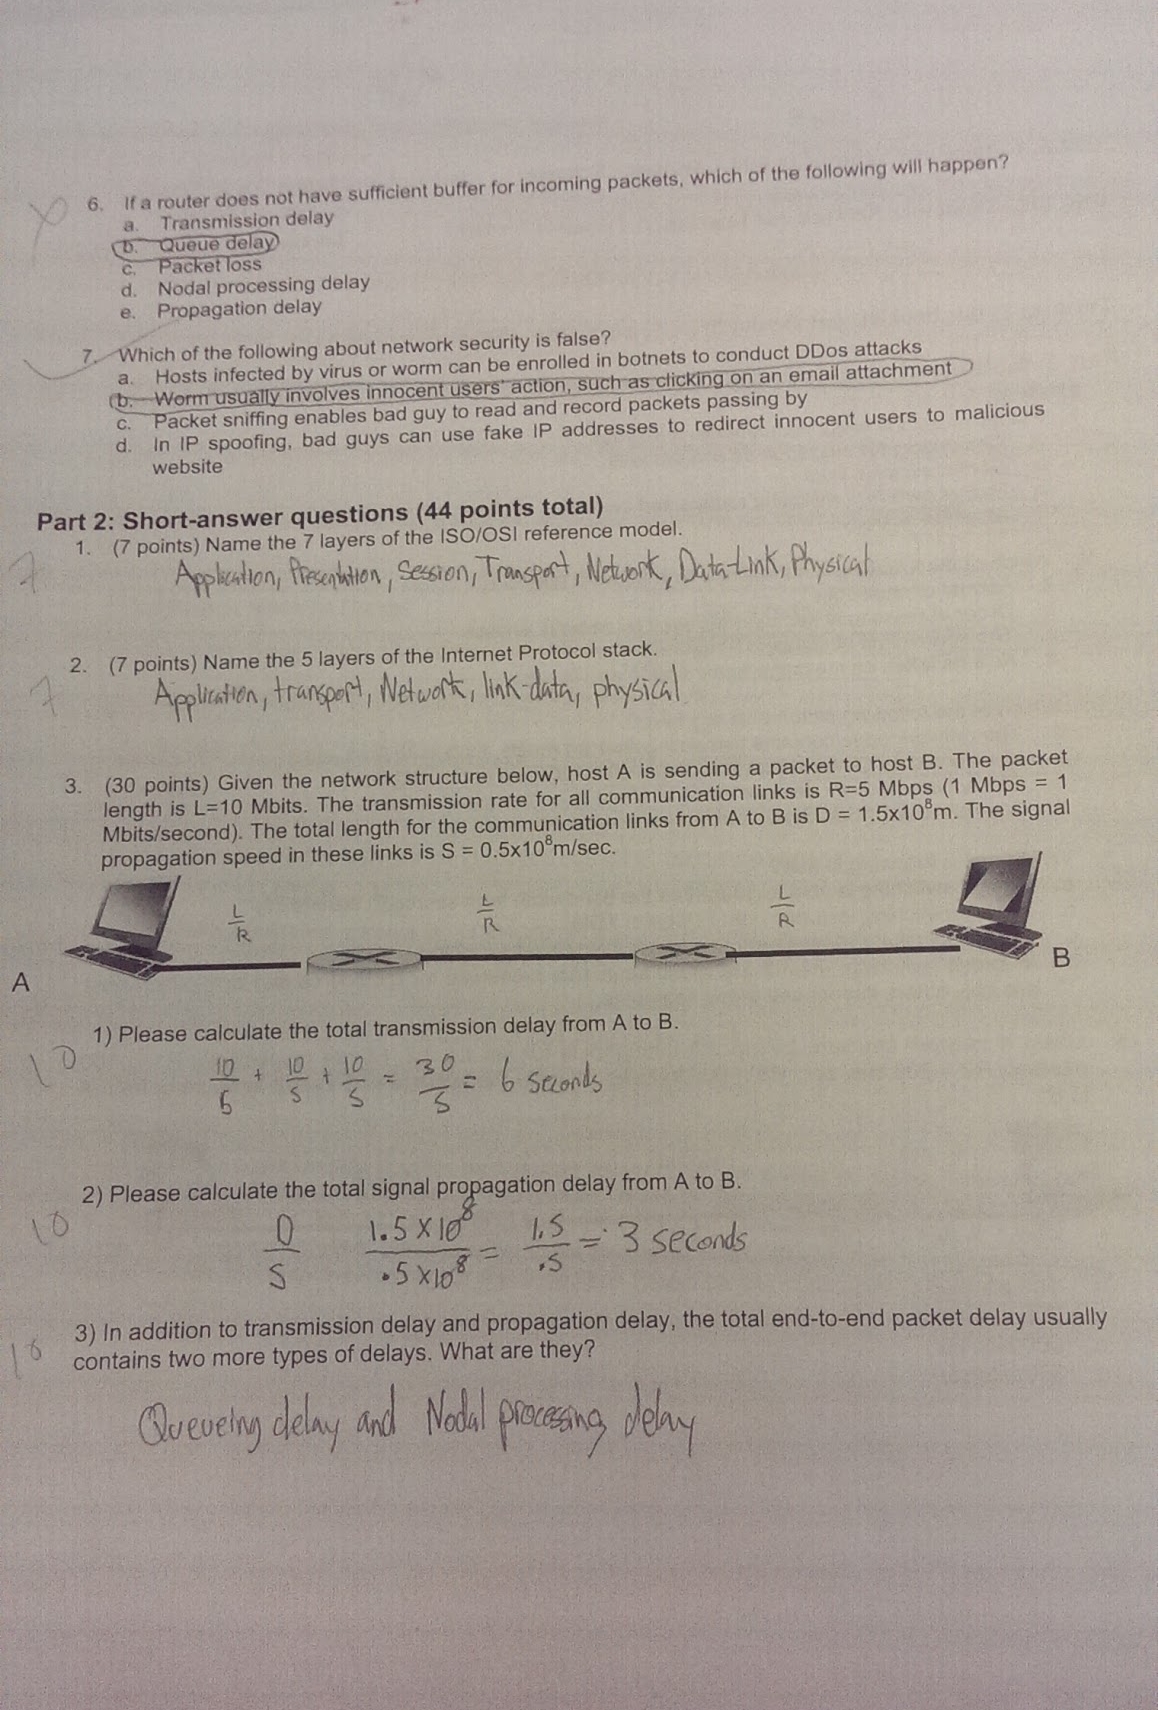 6. If a router does not have sufficient buffer for incoming packets, which of the following will happen?
a. Transmission delay
b. Queue delay
c. Packet loss
d. Nodal processing delay
e. Propagation delay
7. Which of the following about network security is false?
a. Hosts infected by virus or worm can be enrolled in botnets to conduct DDos attacks
b. Worm usually involves innocent users' action, such as clicking on an email attachment
c. Packet sniffing enables bad guy to read and record packets passing by
d. In IP spoofing, bad guys can use fake IP addresses to redirect innocent users to malicious
website
Part 2: Short-answer questions (44 points total)
1. (7 points) Name the 7 layers of the ISO/OSI reference model.
7 Application, Presentation, Session, Transport, Network, Data-Link, Physical
2. (7 points) Name the 5 layers of the Internet Protocol stack.
7 Application, transport, Network, link-data, physical
3. (30 points) Given the network structure below, host A is sending a packet to host B. The packet
length is L=10 Mbits. The transmission rate for all communication links is R=5 Mbps (1 Mbps = 1
Mbits/second). The total length for the communication links from A to B is D = 1.5x10⁸m. The signal
propagation speed in these links is S = 0.5x10⁸m/sec.
L/R L/R L/R
A B
1) Please calculate the total transmission delay from A to B.
10 10/5 + 10/5 + 10/5 = 30/5 = 6 seconds
2) Please calculate the total signal propagation delay from A to B.
10 D/S 1.5 X 10⁸/.5 X 10⁸ = 1.5/.5 = 3 seconds
3) In addition to transmission delay and propagation delay, the total end-to-end packet delay usually
10 contains two more types of delays. What are they?
Queueing delay and Nodal processing delay